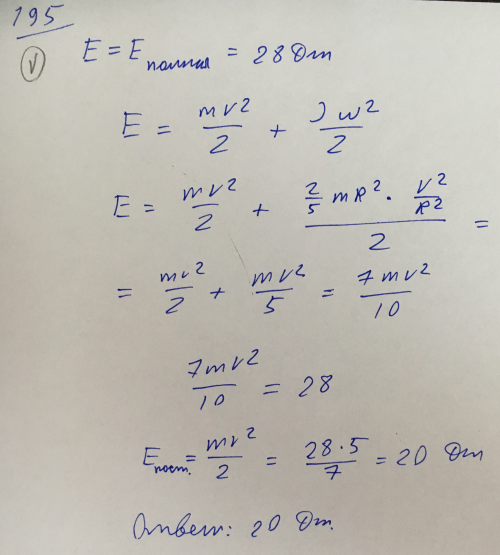 195
V
E = E полная = 28 Дж
E = mv²/2 + Jw²/2
E = mv²/2 + (2/5 mR² · v²/R²)/2 =
= mv²/2 + mv²/5 = 7mv²/10
7mv²/10 = 28
E пост. = mv²/2 = 28·5/7 = 20 Дж
Ответ: 20 Дж.